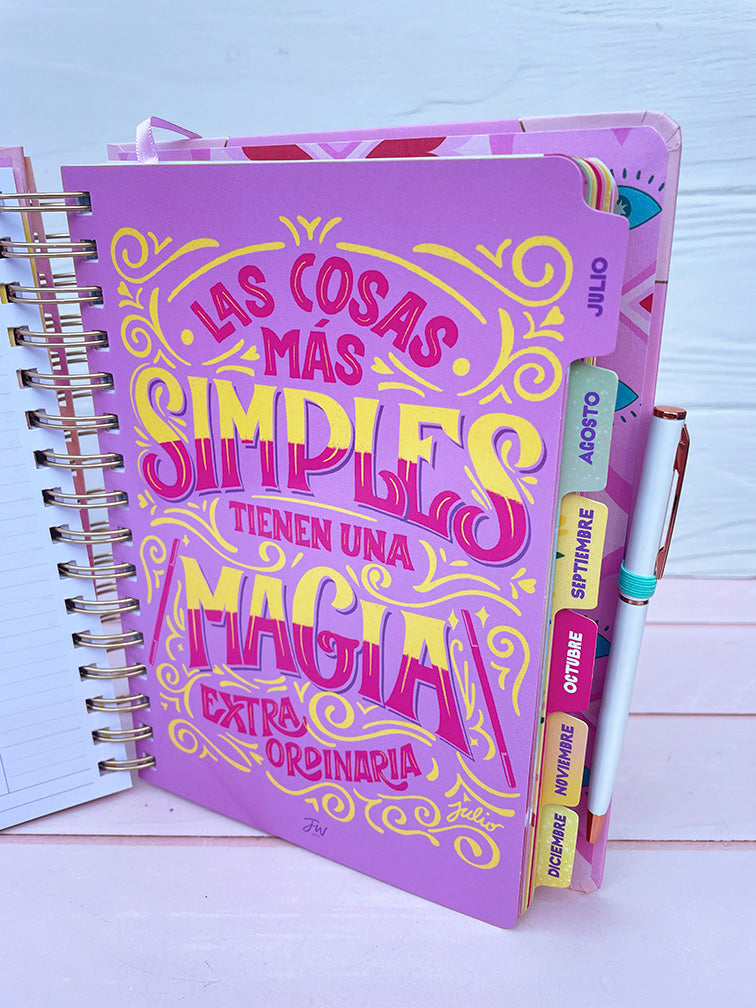 LAS COSAS
MÁS
SIMPLES
TIENEN UNA
MAGIA
EXTRA
ORDINARIA
Julio
JW
JULIO
AGOSTO
SEPTIEMBRE
OCTUBRE
NOVIEMBRE
DICIEMBRE